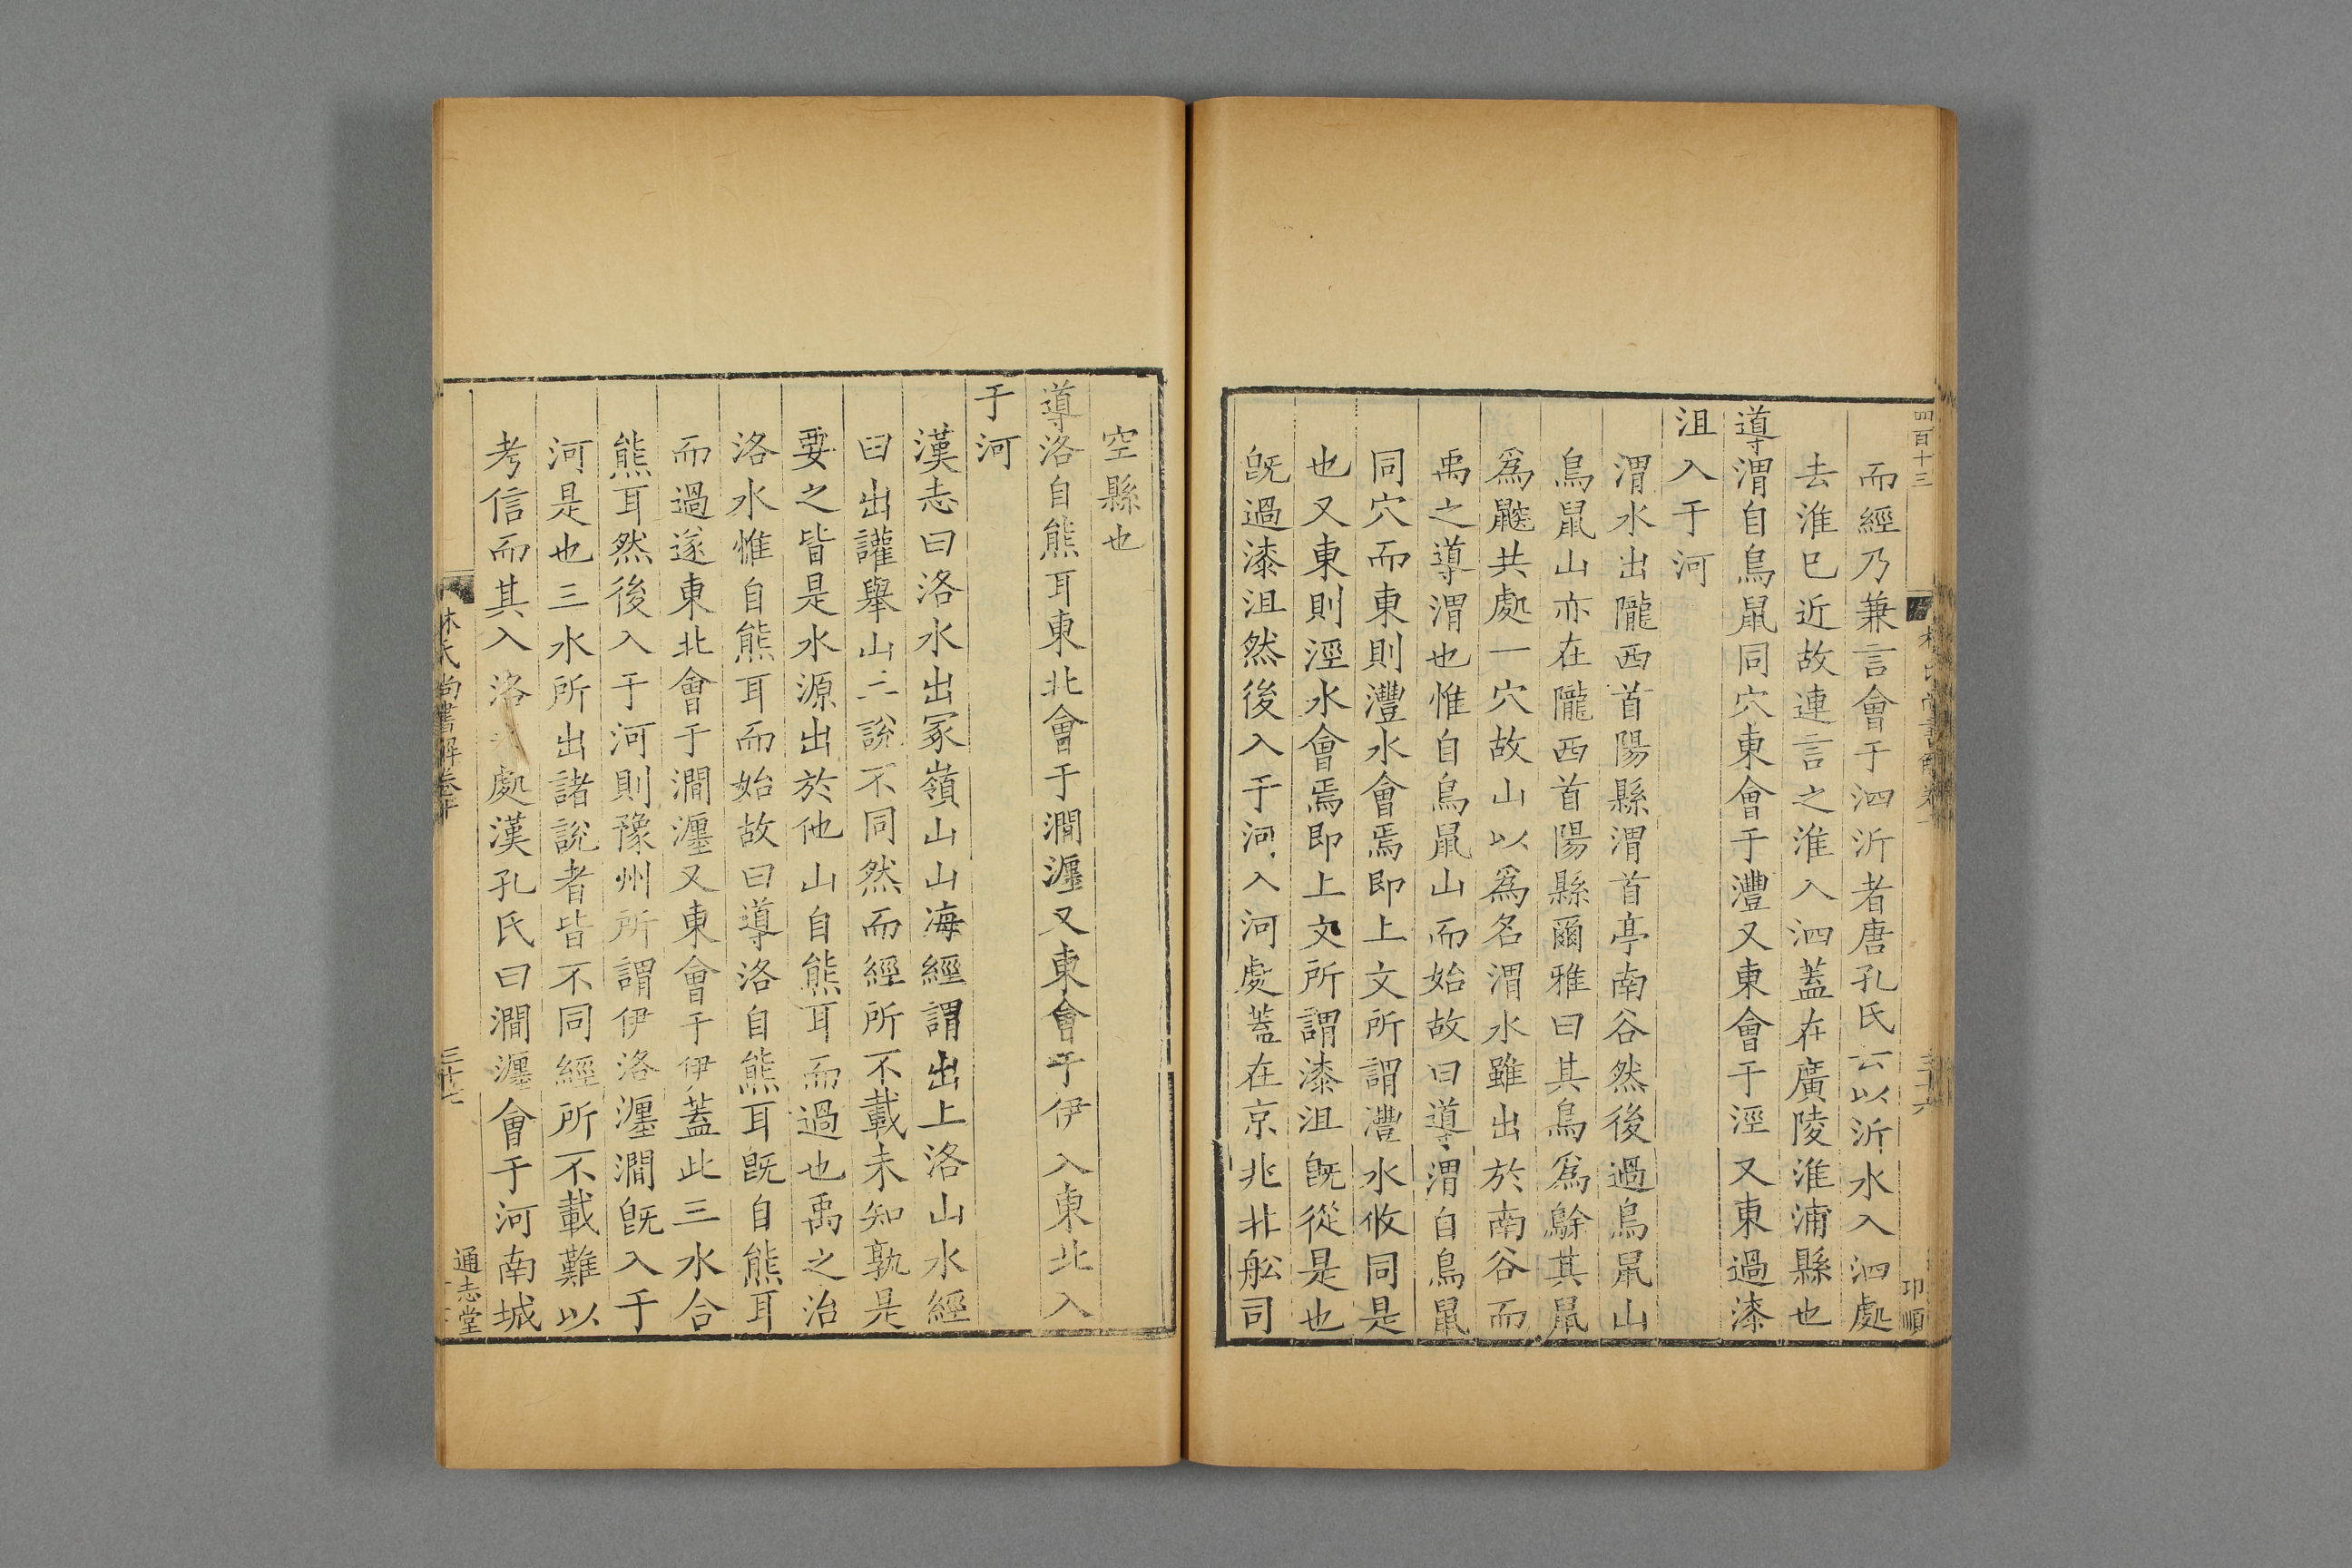 四百十三
而經乃兼言會于泗沂者唐孔氏云以沂水入泗處
去淮已近故連言之淮入泗蓋在廣陵淮浦縣也
導渭自鳥鼠同穴東會于灃又東會于涇又東過漆
沮入于河
渭水出隴西首陽縣渭首亭南谷然後過鳥鼠山
鳥鼠山亦在隴西首陽縣爾雅曰其鳥爲鵌其鼠
爲鼵共處一穴故山以爲名渭水雖出於南谷而
禹之導渭也惟自鳥鼠山而始故曰導渭自鳥鼠
同穴而東則灃水會焉即上文所謂灃水攸同是
也又東則涇水會焉即上文所謂漆沮既從是也
既過漆沮然後入于河入河處蓋在京兆北船司
空縣也
導洛自熊耳東北會于澗瀍又東會于伊入東北入
于河
漢志曰洛水出冢嶺山山海經謂出上洛山水經
曰出讙舉山二說不同然而經所不載未知孰是
要之皆是水源出於他山自熊耳而過也禹之治
洛水惟自熊耳而始故曰導洛自熊耳旣自熊耳
而過遂東北會于澗瀍又東會于伊蓋此三水合
熊耳然後入于河則豫州所謂伊洛瀍澗旣入于
河是也三水所出諸說者皆不同經所不載難以
考信而其入洛處漢孔氏曰澗瀍會于河南城
林氏尚書解卷十
三十七
通志堂